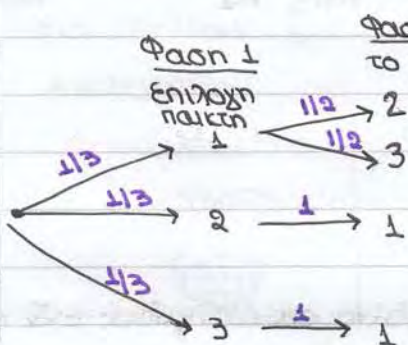 Φαση 1 Φασ
επιλογη το
παικτη
1/3 1 1/2 2
1/2 3
1/3 2 1 1
1/3 3 1 1